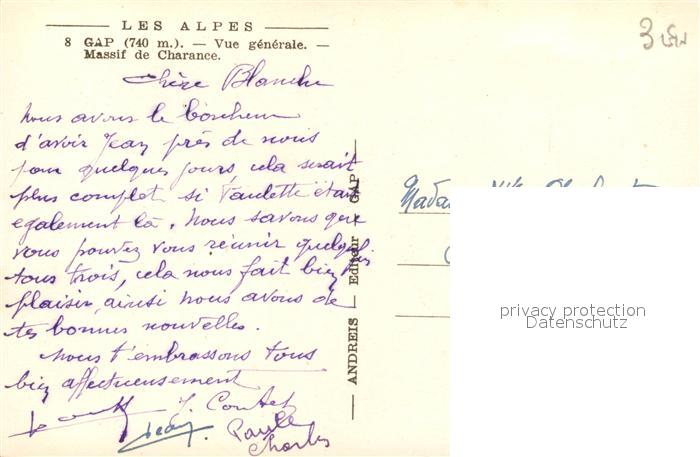 LES ALPES
8 GAP (740 m.). — Vue générale. —
Massif de Charance.
Chère Blanche
Nous avons le bonheur
d'avoir Jean près de nous
pour quelques jours, cela serait
plus complet si Paulette était
également là. Nous savons que
vous pouvez vous réunir quelquefois
tous trois, cela nous fait bien
plaisir, ainsi nous avons de
tes bonnes nouvelles.
Nous t'embrassons tous
bien affectueusement
Jean.
Paule
Charles
ANDREIS — Editeur — GAP —
Madame
privacy protection
Datenschutz